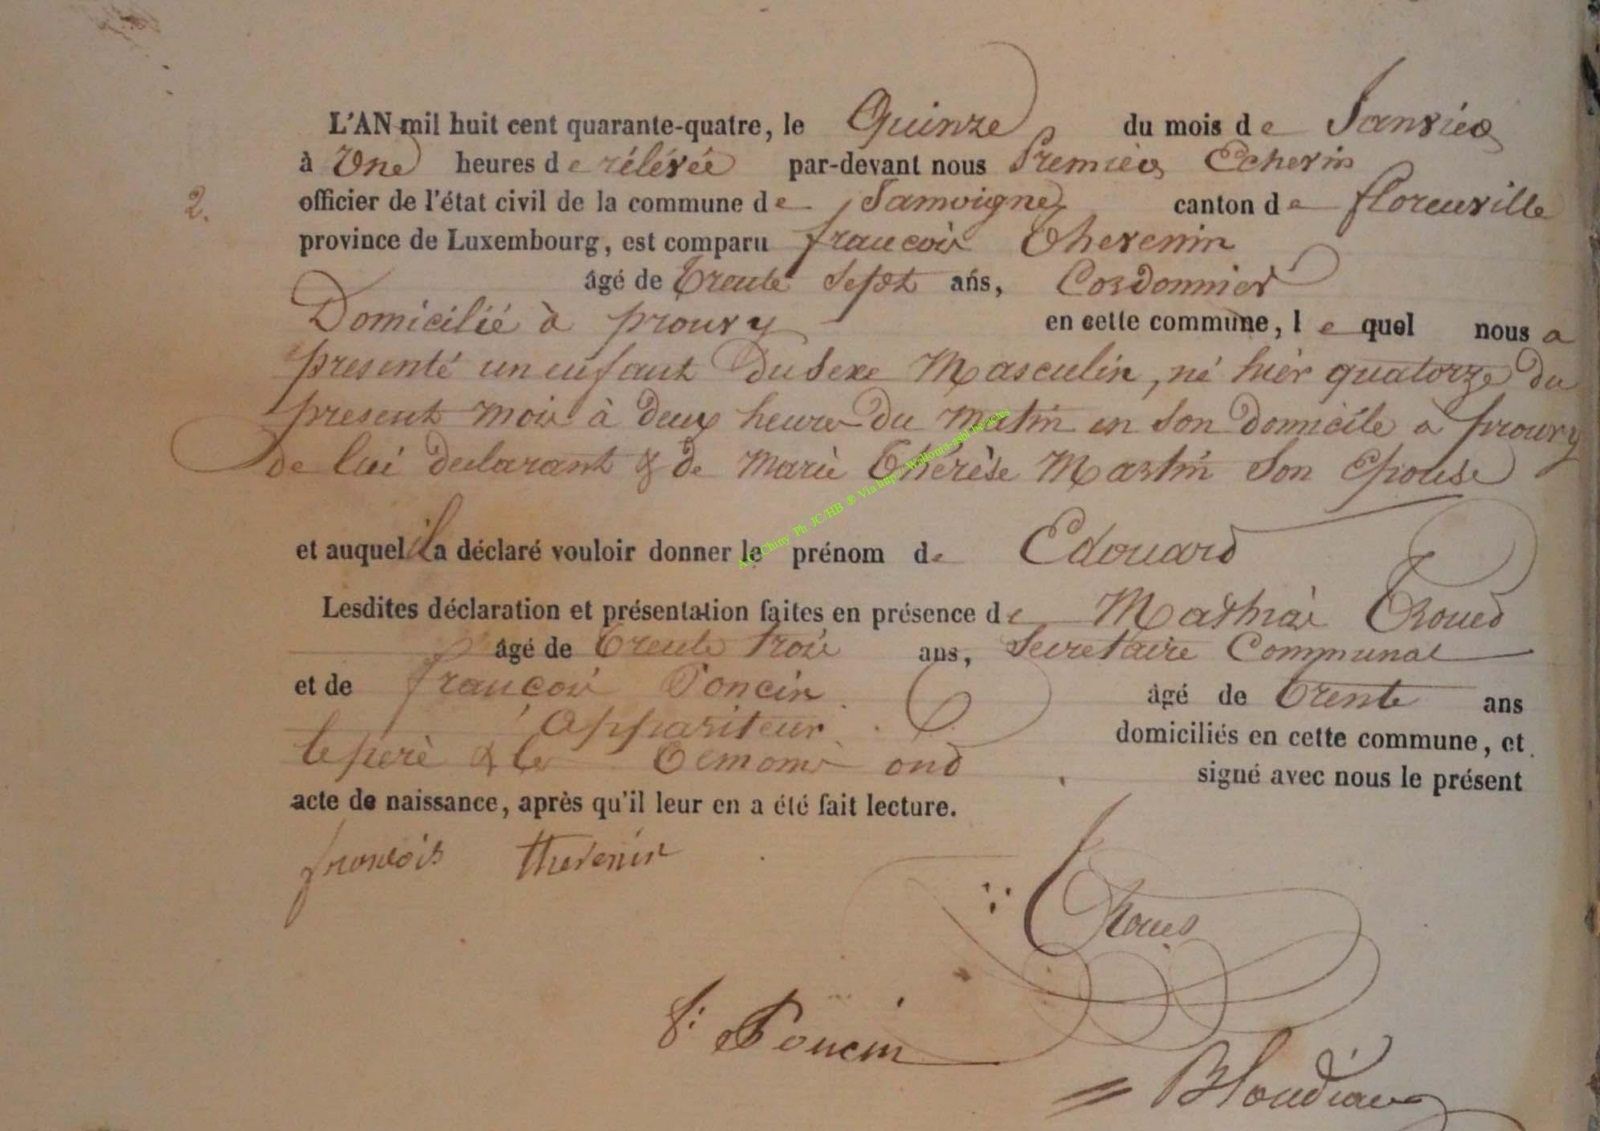 L'AN mil huit cent quarante-quatre, le Quinze du mois de Janvier
à Une heures de rélévée par-devant nous Premier Echevin
2. officier de l'état civil de la commune de Jamoigne canton de florenville
province de Luxembourg, est comparu francois Thevenin
âgé de Trente Sept ans, Cordonnier
Domicilié à prouvy en cette commune, lequel nous a
présenté un enfant Du Sexe Masculin, né hier quatorze du
present mois à deux heures Du Matin en Son Domicile a prouvy
de lui declarant & de Marie Thérèse Martin Son Epouse
et auquel il a déclaré vouloir donner le prénom de Edouard
Lesdites déclaration et présentation faites en présence de Mathias Thoues
âgé de Trente trois ans, Secretaire Communal
et de françois Poncin âgé de Trente ans
Appariteur domiciliés en cette commune, et
le perè & les Temoins ond signé avec nous le présent
acte de naissance, après qu'il leur en a été fait lecture.
francois thevenin
Thoues
f: Poncin